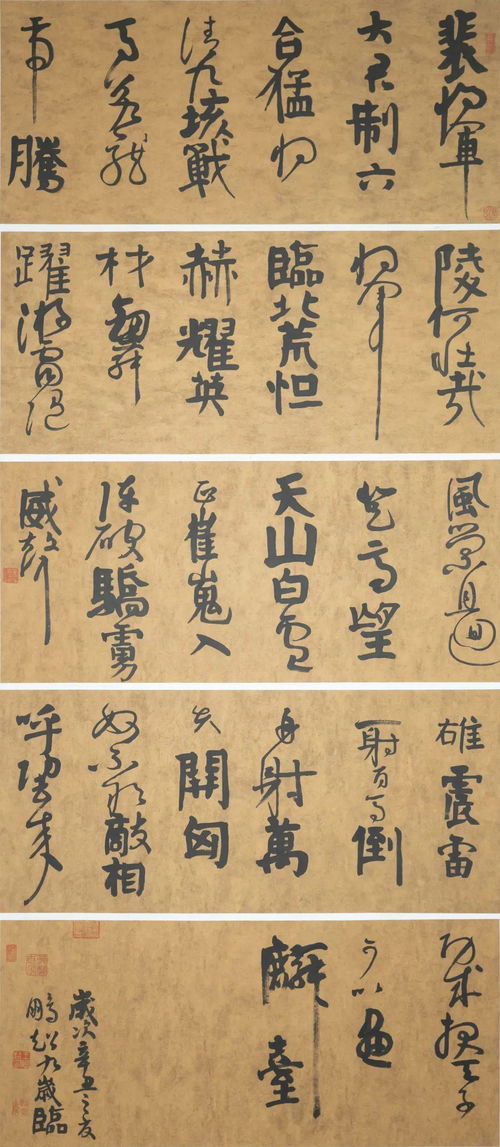 裴將軍
大君制六
合猛將
清九垓戰
馬若龍
虎騰
陵何壯哉
將軍
臨北荒怛
赫耀英
材劒舞
躍游雷隨
風縈且迴
登高望
天山白雲
正崔嵬入
陣破驕虜
威聲
雄震雷
一射百馬倒
再射萬
夫開匈
奴不敢敵相
呼歸去來
功成報天子
可以畫
麟臺
歲次辛丑之
鵬九歲臨